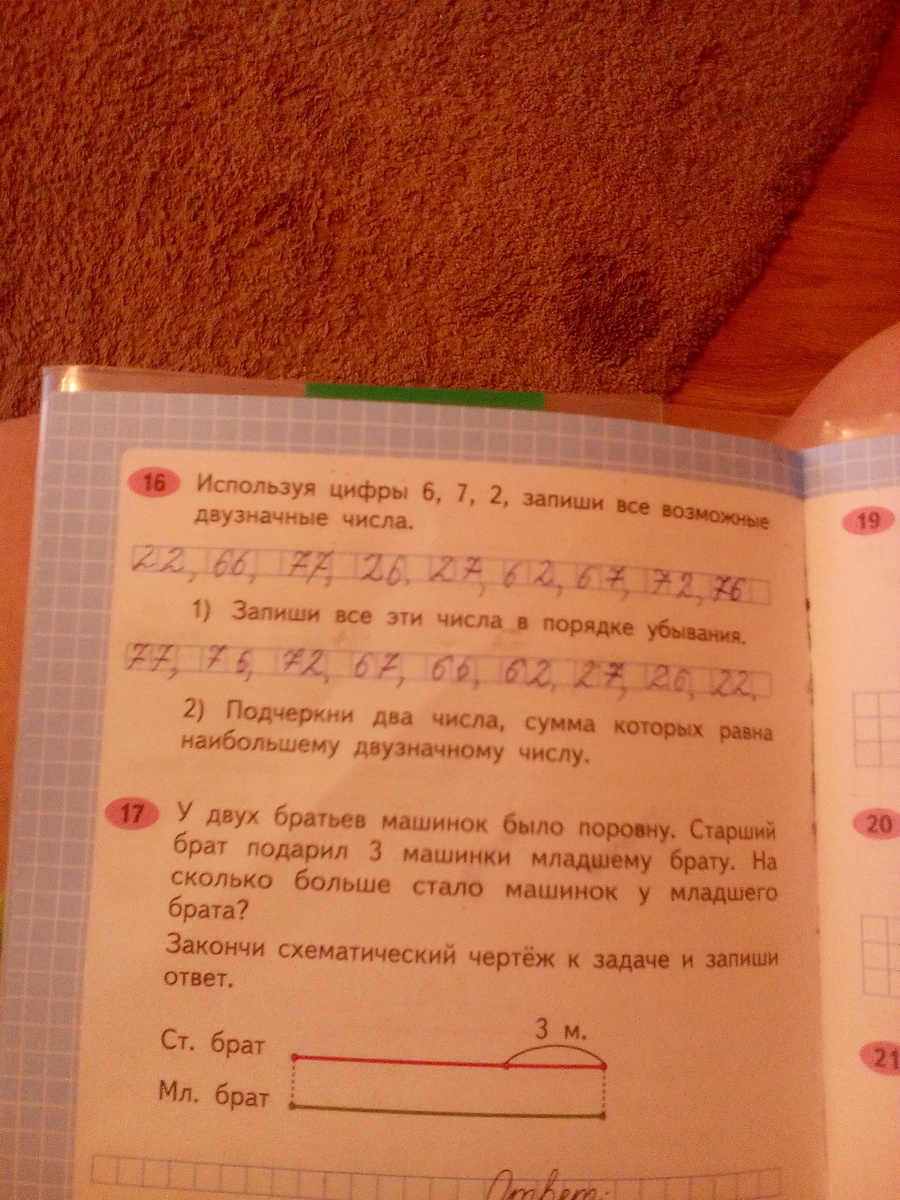 16 Используя цифры 6, 7, 2, запиши все возможные
двузначные числа.
22, 66, 77, 26, 27, 62, 67, 72, 76
1) Запиши все эти числа в порядке убывания.
77, 76, 72, 67, 66, 62, 27, 26, 22,
2) Подчеркни два числа, сумма которых равна
наибольшему двузначному числу.
17 У двух братьев машинок было поровну. Старший
брат подарил 3 машинки младшему брату. На
сколько больше стало машинок у младшего
брата?
Закончи схематический чертёж к задаче и запиши
ответ.
3 м.
Ст. брат
Мл. брат
Ответ:
19
20
21